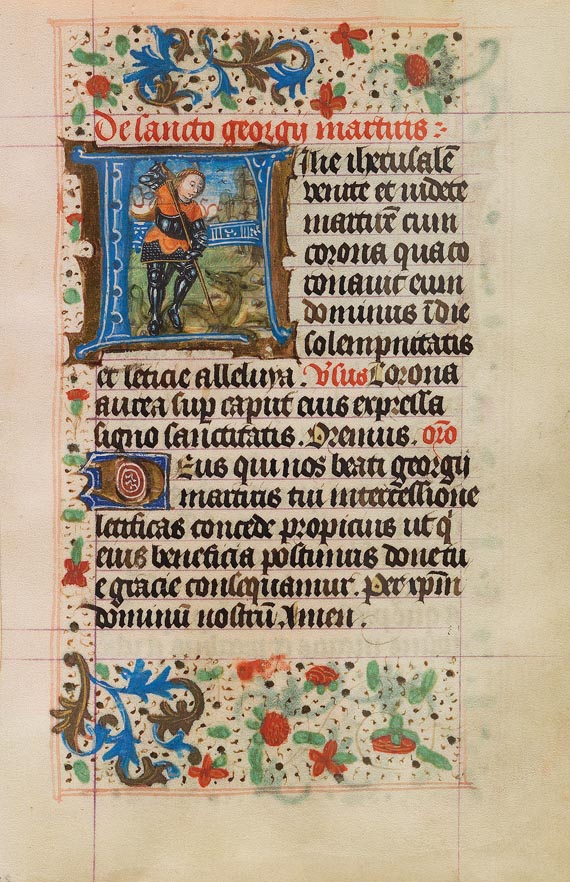 De sancto georgij martiris :~
Filie iherusalē
venite et videte
martirē cum
corona qua co
ronavit eum
dominus ī die
solempnitatis
et leticie alleluya . Vsus Corona
aurea sup caput eius expressa
signo sanctitatis . Oremus . oro
Deus qui nos beati georgij
martiris tui intercessione
letificas concede propicius ut q̄
eius beneficia poscimus dono tu
e gracie consequamur . Per xp̄m
dominū nostrū Amen .